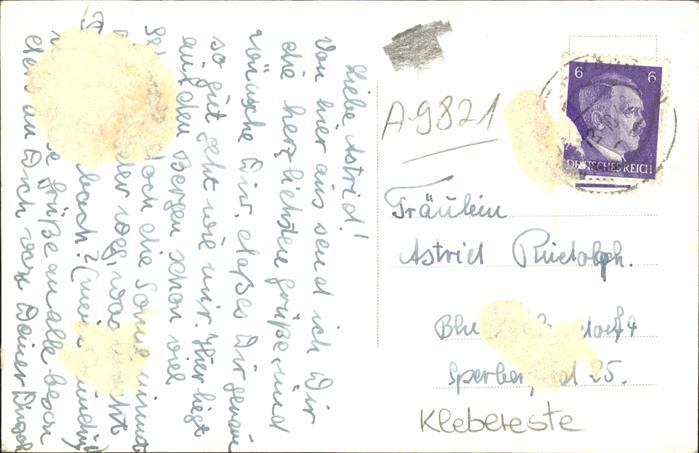 Liebe Astrid!
Von hier aus send ich Dir
die herzliehsten Grüße und
wünsche Dir, daß es Dir genau
so gut geht wie mir. Hier liegt
auf den Bergen schon viel
doch die Sonne nimmt
weg, was macht
bach? (mein
Grüße an alle beson
ders an Dich von Deiner
A9821
6 6
DEUTSCHES REICH
Fräulein
Astrid Rudolph.
Sperber 25.
Klebereste